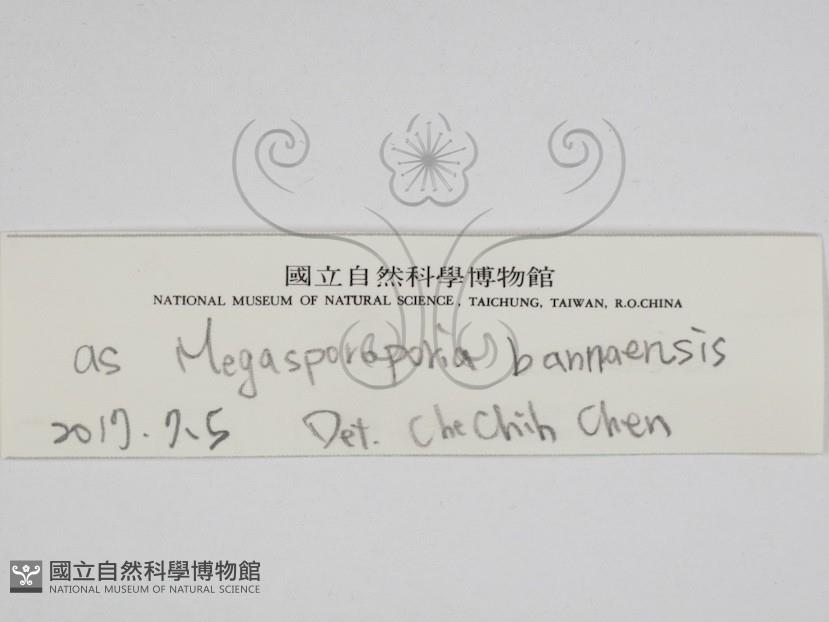 國立自然科學博物館
NATIONAL MUSEUM OF NATURAL SCIENCE, TAICHUNG, TAIWAN, R.O.CHINA
as Megasporoporia bannaensis
2017.7.5 Det. CheChih Chen
國立自然科學博物館
NATIONAL MUSEUM OF NATURAL SCIENCE